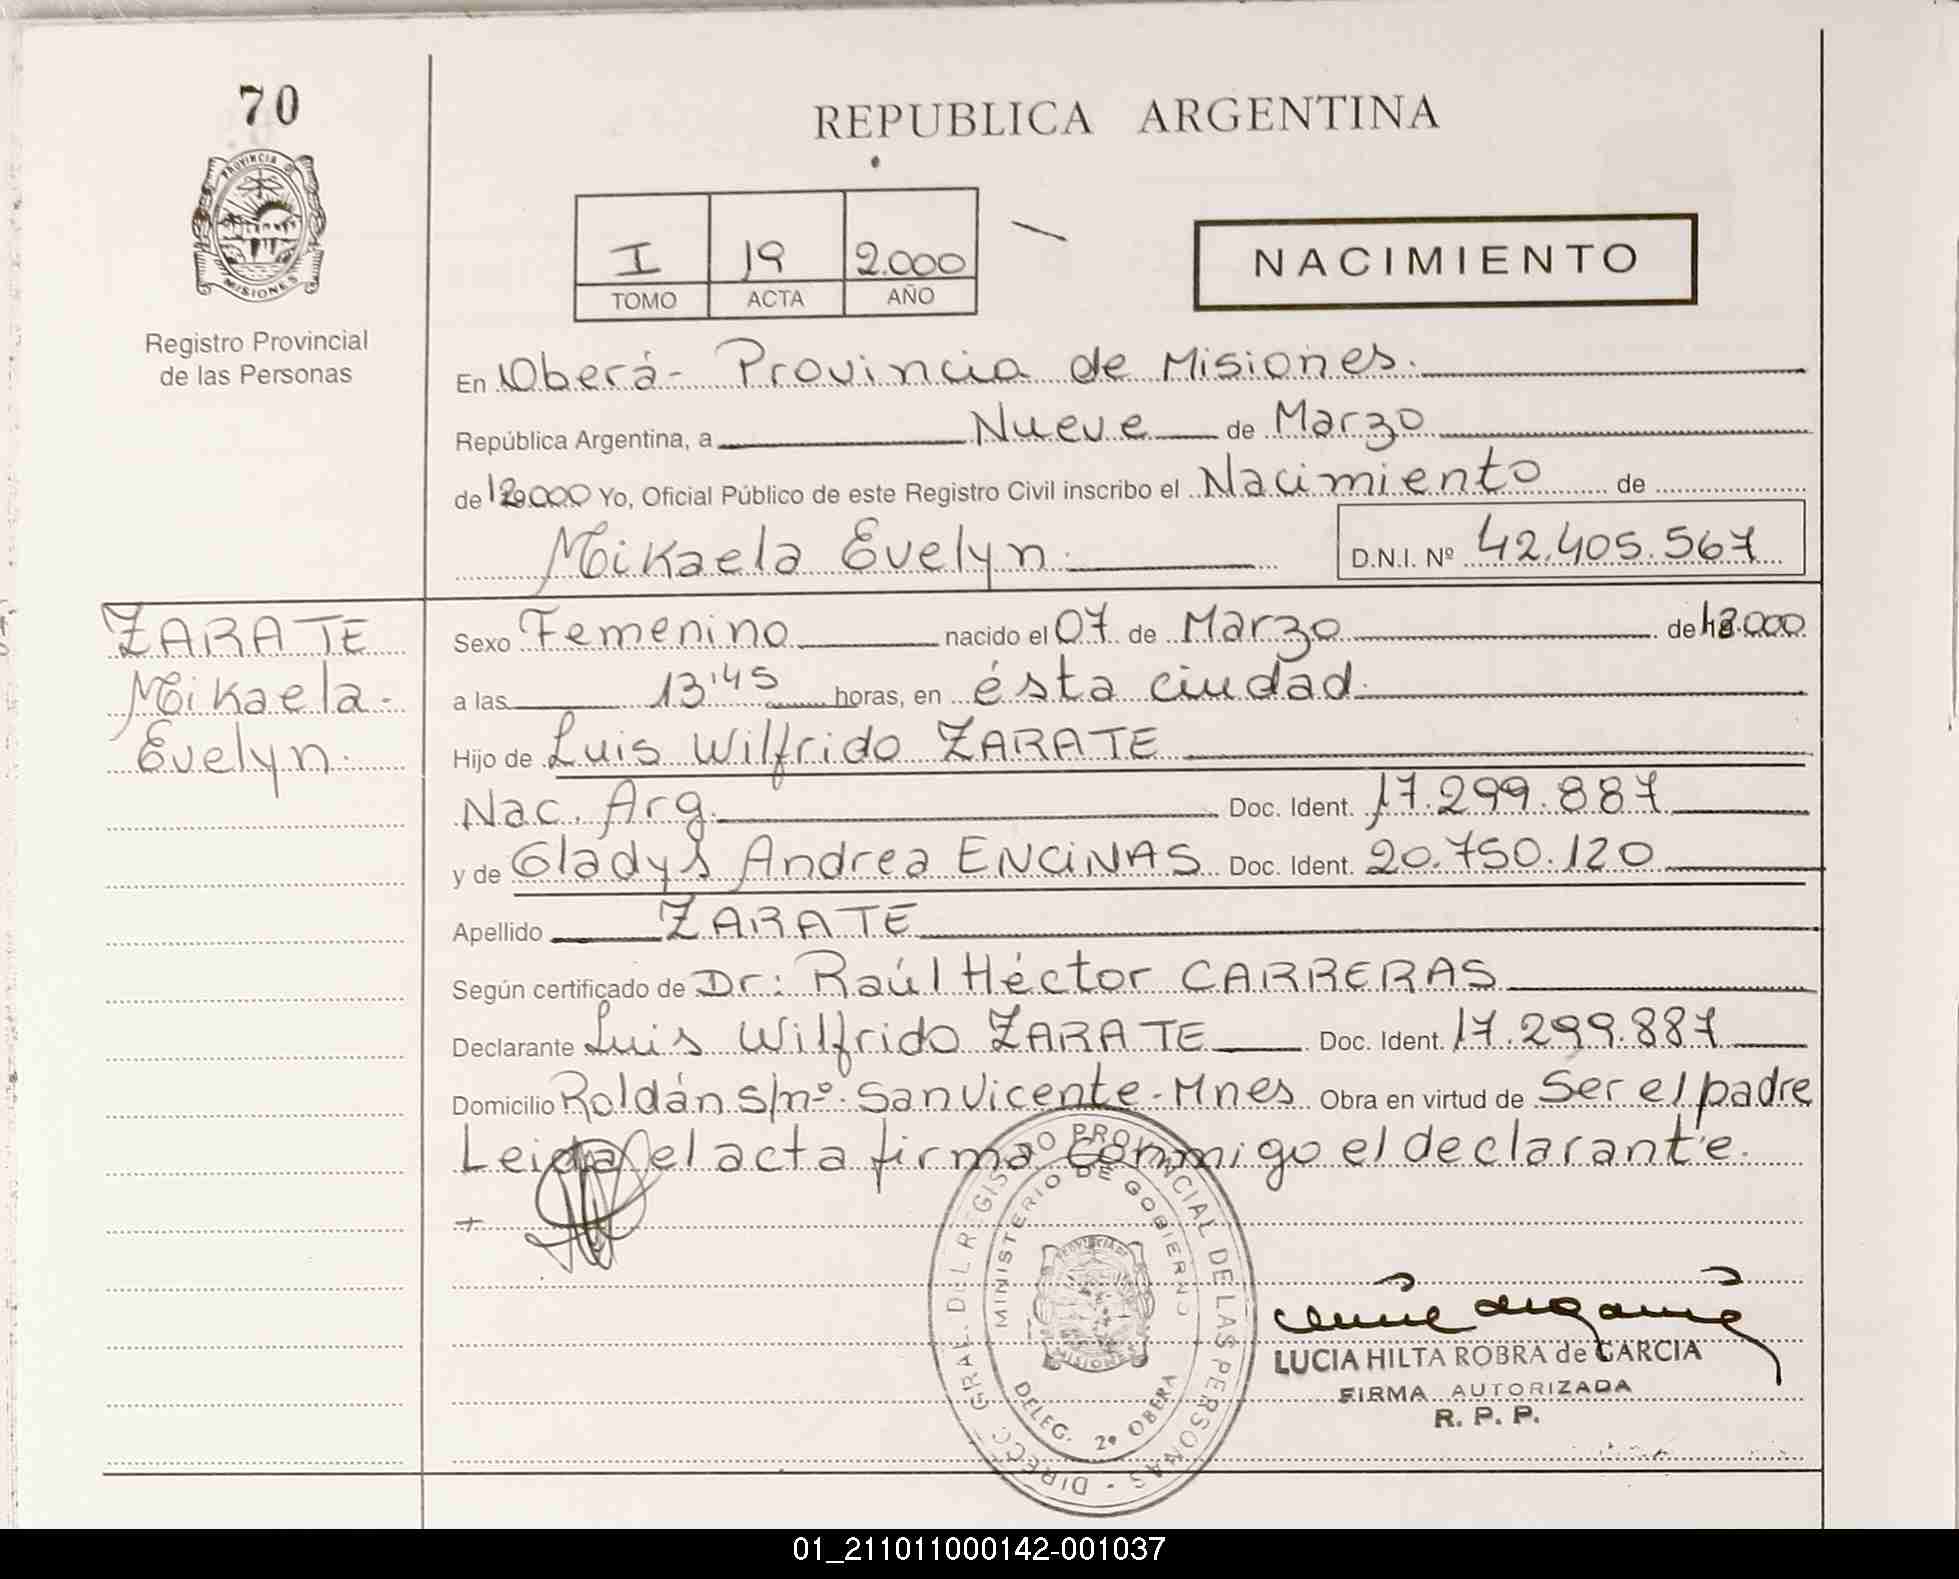 70
REPUBLICA ARGENTINA
PROVINCIA DE
MISIONES
I 19 2.000
TOMO ACTA AÑO
NACIMIENTO
Registro Provincial
de las Personas
En Oberá - Provincia de Misiones.
República Argentina, a Nueve de Marzo
de 2.000 Yo, Oficial Público de este Registro Civil inscribo el Nacimiento de
Mikaela Evelyn. D.N.I. Nº 42.405.567
ZARATE
Mikaela -
Evelyn.
Sexo Femenino nacido el 07 de Marzo de 2.000
a las 13'45 horas, en ésta ciudad.
Hijo de Luis Wilfrido ZARATE
Nac. Arg. Doc. Ident. 17.299.887
y de Gladys Andrea ENCINAS Doc. Ident. 20.750.120
Apellido ZARATE
Según certificado de Dr: Raúl Héctor CARRERAS
Declarante Luis Wilfrido ZARATE Doc. Ident. 17.299.887
Domicilio Roldán s/nº. San Vicente - Mnes Obra en virtud de Ser el padre
Leida el acta firma conmigo el declarante.
DIRECC. GRAL. DEL REGISTRO PROVINCIAL DE LAS PERSONAS
MINISTERIO DE GOBIERNO
PROVINCIA DE
MISIONES
DELEG. 2º OBERA
LUCIA HILTA ROBRA de GARCIA
FIRMA AUTORIZADA
R. P. P.
01_211011000142-001037